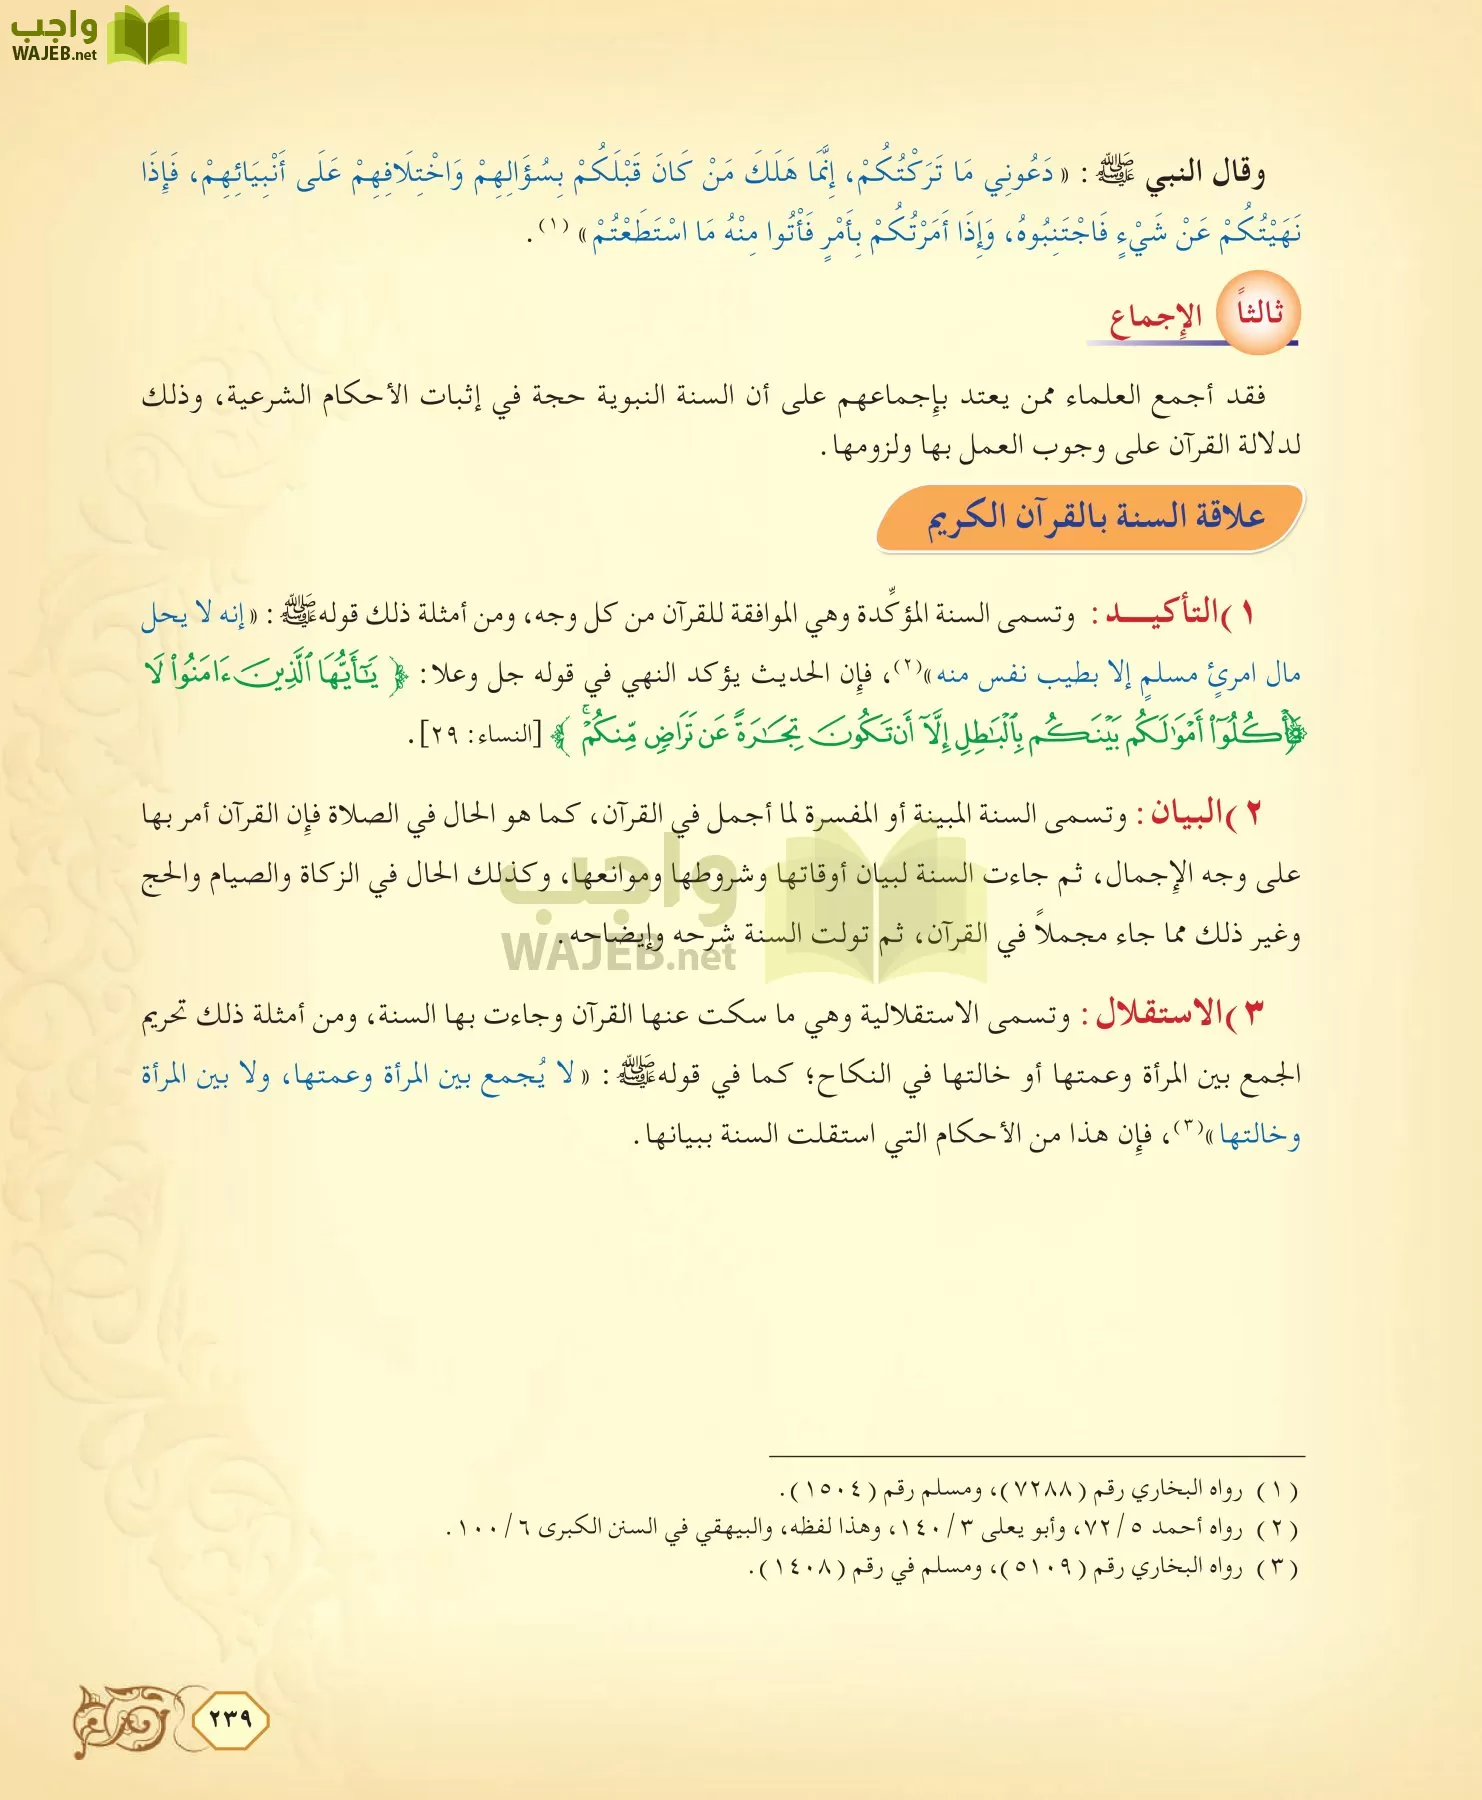 واجب
WAJEB.net
وقال النبي ﷺ : « دَعُونِي مَا تَرَكْتُكُمْ، إِنَّمَا هَلَكَ مَنْ كَانَ قَبْلَكُمْ بِسُؤَالِهِمْ وَاخْتِلَافِهِمْ عَلَى أَنْبِيَائِهِمْ، فَإِذَا
نَهَيْتُكُمْ عَنْ شَيْءٍ فَاجْتَنِبُوهُ، وَإِذَا أَمَرْتُكُمْ بِأَمْرٍ فَأْتُوا مِنْهُ مَا اسْتَطَعْتُمْ » (١) .
ثالثاً الإجماع
فقد أجمع العلماء ممن يعتد بإجماعهم على أن السنة النبوية حجة في إثبات الأحكام الشرعية، وذلك
لدلالة القرآن على وجوب العمل بها ولزومها .
علاقة السنة بالقرآن الكريم
١ )التأكيـــد : وتسمى السنة المؤكِّدة وهي الموافقة للقرآن من كل وجه، ومن أمثلة ذلك قوله ﷺ : « إنه لا يحل
مال امرئٍ مسلمٍ إلا بطيب نفس منه »(٢)، فإن الحديث يؤكد النهي في قوله جل وعلا : ﴿ يَٰٓأَيُّهَا ٱلَّذِينَ ءَامَنُوا۟ لَا
تَأْكُلُوٓا۟ أَمْوَٰلَكُم بَيْنَكُم بِٱلْبَٰطِلِ إِلَّآ أَن تَكُونَ تِجَٰرَةً عَن تَرَاضٍ مِّنكُمْ ۚ ﴾ [النساء: ٢٩] .
٢ )البيان : وتسمى السنة المبينة أو المفسرة لما أجمل في القرآن، كما هو الحال في الصلاة فإن القرآن أمر بها
على وجه الإجمال، ثم جاءت السنة لبيان أوقاتها وشروطها وموانعها، وكذلك الحال في الزكاة والصيام والحج
وغير ذلك مما جاء مجملاً في القرآن، ثم تولت السنة شرحه وإيضاحه .
واجب
WAJEB.net
٣ )الاستقلال : وتسمى الاستقلالية وهي ما سكت عنها القرآن وجاءت بها السنة، ومن أمثلة ذلك تحريم
الجمع بين المرأة وعمتها أو خالتها في النكاح؛ كما في قوله ﷺ : « لا يُجمع بين المرأة وعمتها، ولا بين المرأة
وخالتها »(٣)، فإن هذا من الأحكام التي استقلت السنة ببيانها .
(١) رواه البخاري رقم (٧٢٨٨)، ومسلم رقم (١٥٠٤) .
(٢) رواه أحمد ٥/ ٧٢، وأبو يعلى ٣/ ١٤٠، وهذا لفظه، والبيهقي في السنن الكبرى ٦/ ١٠٠ .
(٣) رواه البخاري رقم (٥١٠٩)، ومسلم في رقم (١٤٠٨) .
٢٣٩